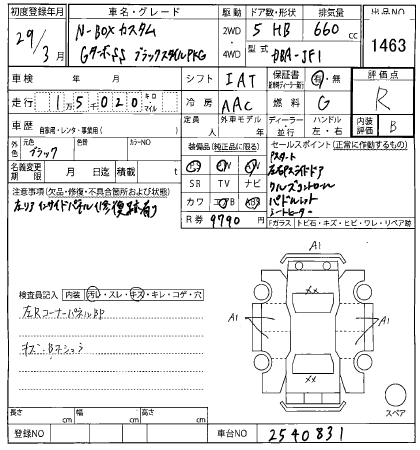 初度登録年月 車名・グレード 駆動 ドア数・形状 排気量 出品NO
29年 3月 N-BOX カスタム 2WD 4WD 5 HB 660 cc 1463
Gターボ SS ブラックスタイルPKG 型式 DBA-JF1
車検 年 月 シフト IAT 保証書 有・無 評価点
走行 1万5千020 キロ・マイル 冷房 AAC 燃料 G R
車歴 自家用・レンタ・事業用( ) 定員 人 外車モデル 年 ディーラー・並行 ハンドル 左・右 内装評価 B
外色 元色 ブラック 色替 カラーNO 装備品(純正品に限る) セールスポイント(正常に作動するもの)
名義変更期限 月 日迄 積載 t
Pスタート
左右Pスライドドア
クルーズコントロール
パドルシフト
シートヒーター
SR TV ナビ
カワ エアB ABS
R券 9790円
注意事項(欠品・修復・不具合箇所および状態)
左リアインサイドパネル(修復跡有)
Fガラス トビ石・キズ・ヒビ・ワレ・リペア跡
検査員記入 内装 汚レ・スレ・キズ・キレ・コゲ・穴
左RコーナーパネルBP
A1
A1
A1
スペア
長さ cm 幅 cm 高さ cm
登録NO 車台NO 2540831